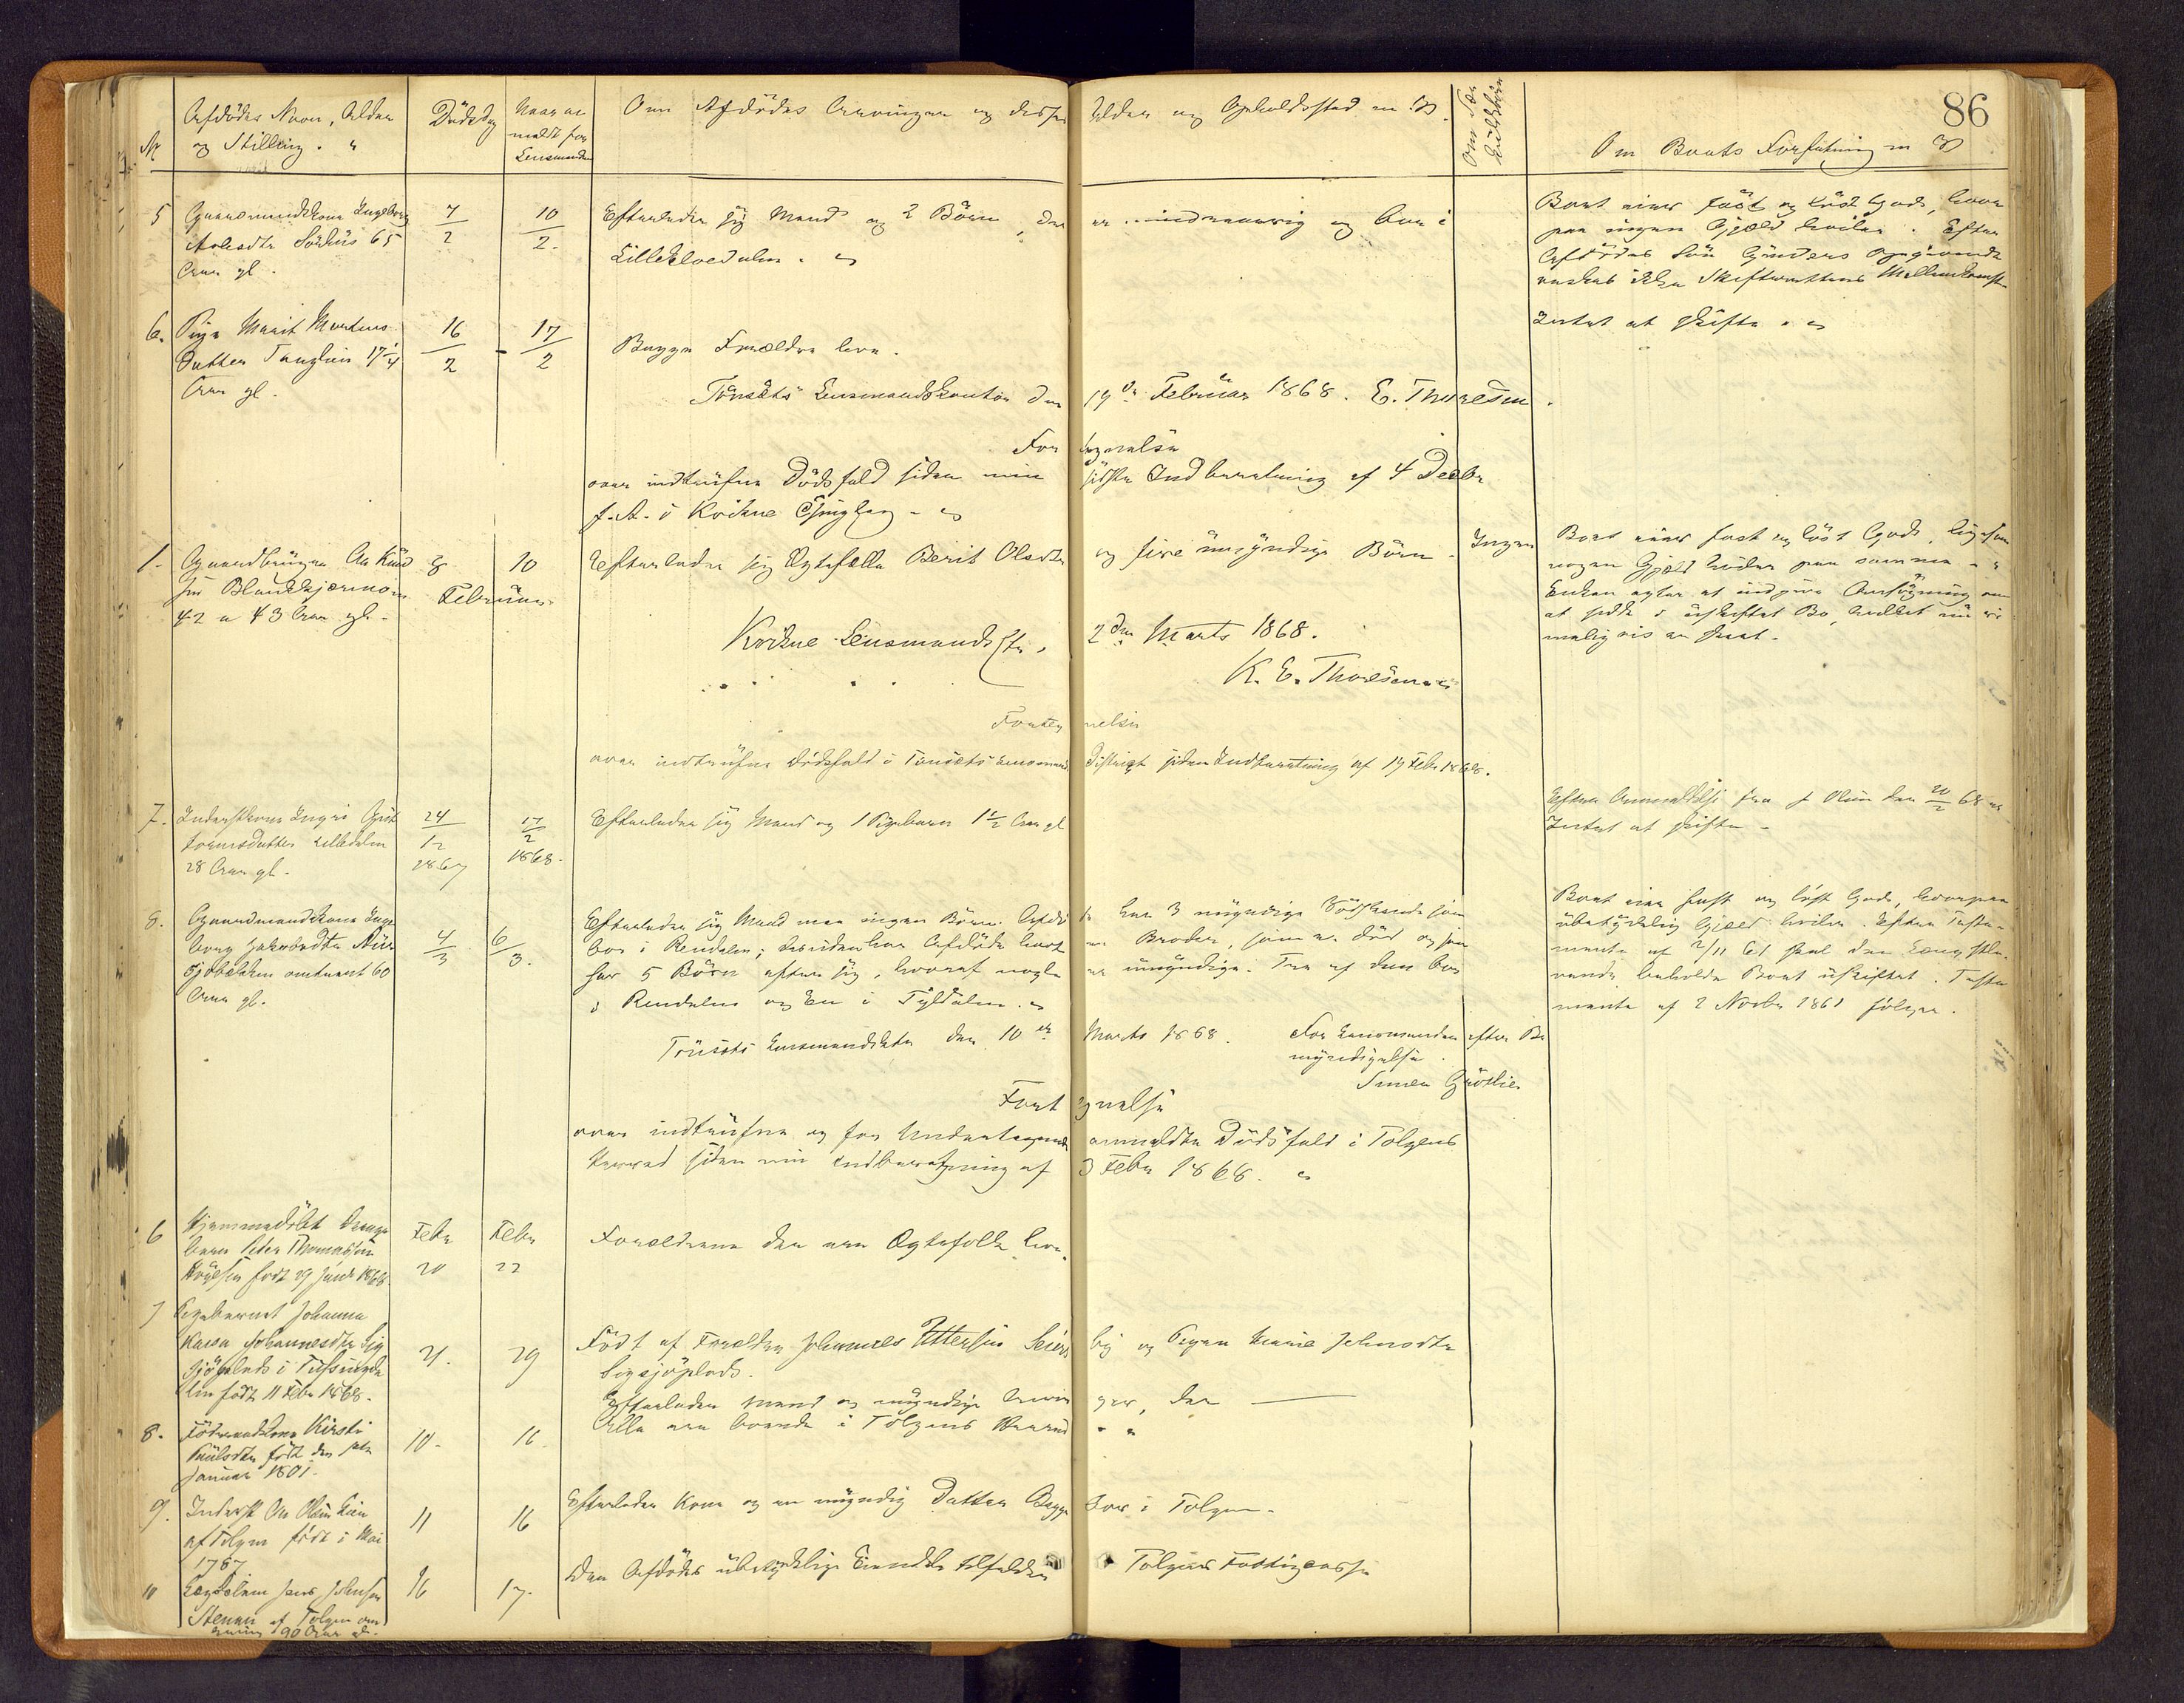 86
Afdødes Navn, Alder
og Stilling.
Nr
Dødsdag
Naar an-
meldt for
Lensmanden
Om Afdødes Arvinger og disses Alder og Opholdssted m. V.
Om Sær
kuldbørn
Om Boets Forfatning m V
5 Gaardmandskone Ingeborg
65
Aar gl.
7/2
10/2.
Efterlader sig Mand og 2 Børn, der er mindreaarig og bor i
Lilleelvedalen.
Boet eier fast og løst Gods, hvor
paa ingen Gjæld hviler. Efter
Afdødes Søn Opgivende
ønskes ikke Skifterettens Mellemkomst
6. Pige Marit Mortens-
datter 17 1/4
Aar gl.
16/2
17/2
Begge Forældre leve.
Intet at skifte.
Tønsets Lensmandskontor den 19de Februar 1868. E. Thoresen.
Fortegnelse
over indtrufne Dødsfald siden min sidste Indberetning af 4 Decbr
f. A. i Kvikne Thinglag
1. Gaardbruger Ole Knud
sen
42 a 43 Aar gl.
8
10
Februar
Efterlader sig Ægtefælle Berit Olsdtr og fire umyndige Børn.
Ingen
Boet eier fast og løst Gods, ligesom
nogen Gjæld hviler paa samme.
Enken agter at indgive Ansøgning om
at sidde i uskiftet Bo, hvilket
Kvikne Lensmands 2den Marts 1868.
K. E. Thoresen
Fortegnelse
over indtrufne Dødsfald i Tønsets Lensmandsdistrigt siden Indberetning af 19 Febr 1868.
7. Inderstkone Ingri
datter Lilledalen
28 Aar gl.
24/12
1867
17/2
1868.
Efterlader sig Mand og 1 Pigebarn 1 1/2 Aar gl
Efter Anmeldelse fra den 20/2 68 er
Intet at skifte.
8. Gaardmandskone Inge
borg Jakobsdtr
omtrent 60
Aar gl.
4/3
6/3.
Efterlader sig Mand men ingen Børn. Afdøde har 3 myndige Sødskende som
bor i Rendalen; desuden har Afdøde havt en Broder, som er død og som
har 5 Børn efter sig, hvoraf nogle er umyndige. Fire af dem bor
i Rendalen og En i Tyldalen.
Boet eier fast og løst Gods, hvorpaa
ubetydelig Gjæld hviler. Efter Testa-
mente af 2/11 61 skal den Længstle-
vende beholde Boet uskiftet. Testa
mente af 2 Novbr 1861 følger.
Tønsets den 10de Marts 1868. For Lensmanden efter Be
myndigelse.
Fortegnelse
over indtrufne og for Undertegnede anmeldte Dødsfald i Tolgens
Herred siden min Indberetning af 3 Febr 1868.
6 Hjemmedøbt Drenge
barn Peder Thomassen
født 29 1868
Febr
20
Febr
22
Forældrene der ere Ægtefolk leve.
7 Pigebarnet Johanna
Karen Johannesdtr
født 11 Febr 1868.
21.
29
Født af Forældre Johannes Pettersen og Pigen Marie Johnsdtr
Sigsjøplads.
8. Kirsti
født den
Januar 1801.
10.
16.
Efterlader Mand og myndige Arvinger, der
Alle ere boende i Tolgens Herred
9. Inderst Ole Olsen Lien
af Tolgen født i Mai
1787
11
16
Efterlader Kone og en myndig Datter Begge bor i Tolgen.
10 Lægdslem Jens Johnsen
af Tolgen om
90 Aar gl.
16
17.
Den Afdødes ubetydelige Eiendele tilfalder Tolgens Fattigcasse